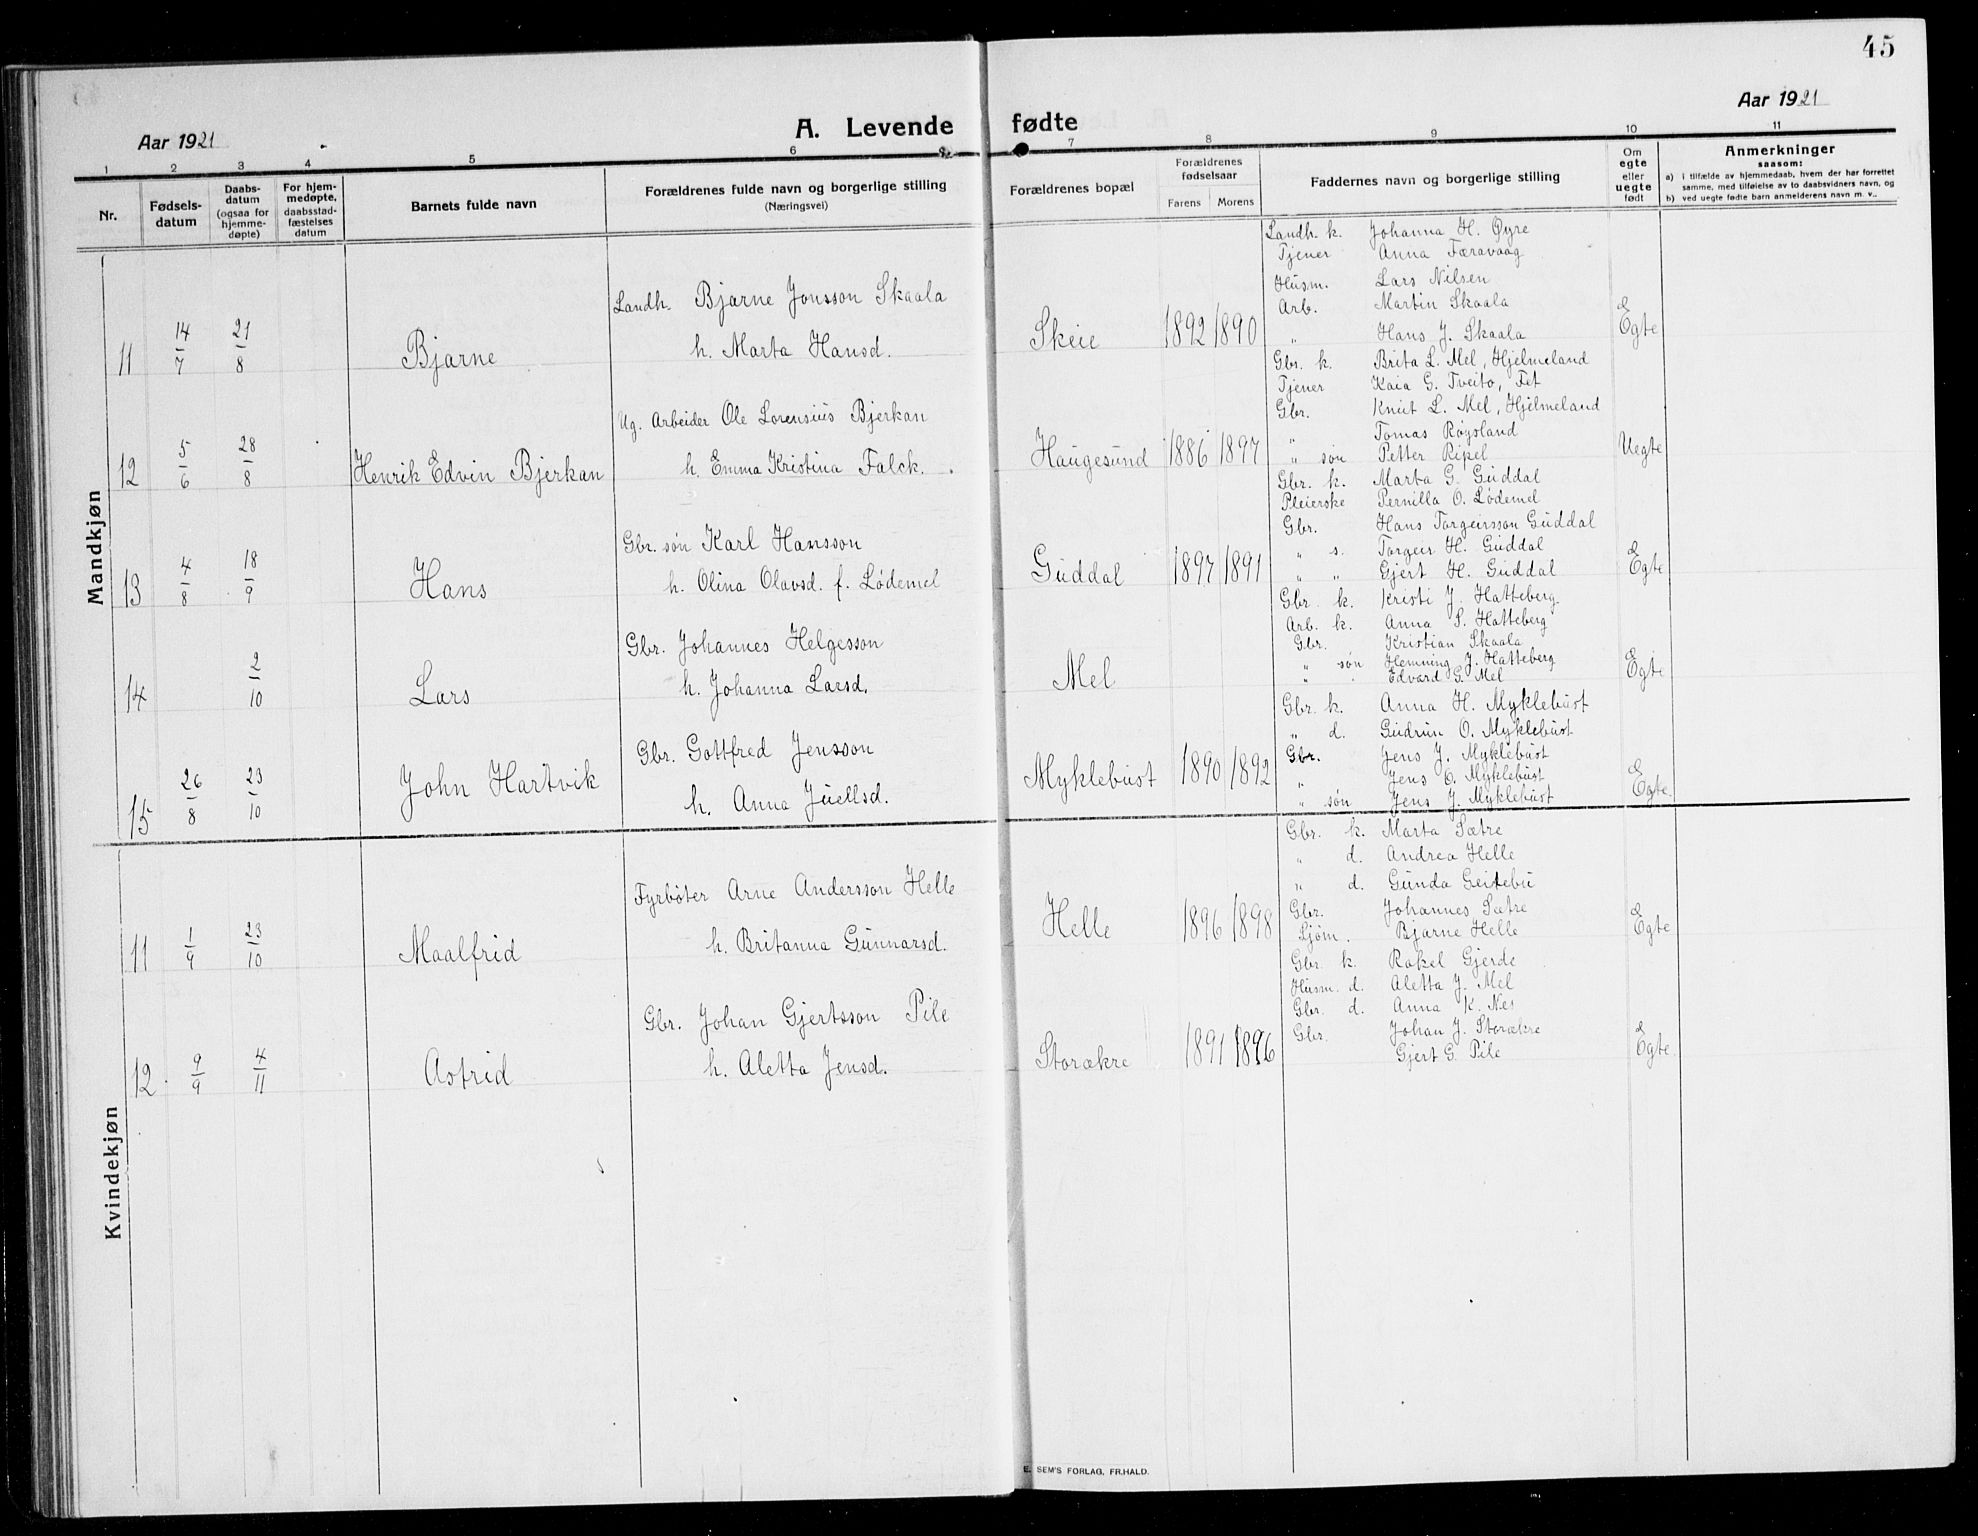 45
Aar 1921
A. Levende fødte
Aar 1921
1 2 3 4 5 6 7 8 9 10 11
Nr.
Fødsels-
datum
Daabs-
datum
(ogsaa for
hjemme-
døpte)
For hjem-
medøpte,
daabsstad-
fæstelses
datum
Barnets fulde navn
Forældrenes fulde navn og borgerlige stilling
(Næringsvei)
Forældrenes bopæl
Forældrenes
fødselsaar
Farens Morens
Faddernes navn og borgerlige stilling
Om
egte
eller
uegte
født
Anmerkninger
saasom:
a) i tilfælde av hjemmedaab, hvem der har forrettet
samme, med tilføielse av to daabsvidners navn, og
b) ved uegte fødte barn anmelderens navn m. v..
Mandkjøn
11 14/7 21/8 Bjarne
Landh. Bjarne Jonsson Skaala
h. Marta Hansd.
Skeie 1892 1890
Landh. k. Johanna H. Øyre
Tjener Anna Færavaag
Husm. Lars Nilsen
Arb. Martin Skaala
" Hans J. Skaala
Egte
12 5/6 28/8 Henrik Edvin Bjerkan
Ug. Arbeider Ole Lorensius Bjerkan
h. Emma Kristina Falck.
Haugesund 1886 1897
Gbr. k. Brita L. Mel, Hjelmeland
Tjener Kaia G. Tveito, Fet
Gbr. Knut L. Mel, Hjelmeland
" Tomas Røgsland
" søn Petter Ripel
Uegte
13 4/8 18/9 Hans
Gbr. søn Karl Hansson
h. Olina Olavsd. f. Lødemel
Guddal 1897 1891
Gbr. k. Marta G. Guddal
Pleierske Pernilla O. Lødemel
Gbr. Hans Torgeirsson Guddal
" s. Torgeir H. Guddal
" " Gjert H. Guddal
Egte
14 2/10 Lars
Gbr. Johannes Helgesson
h. Johanna Larsd.
Mel
Gbr. k. Kristi J. Hatteberg
Arb. k. Anna S. Hatteberg
Gbr. Kristian Skaala
" søn Hemning J. Hatteberg
" Edvard G. Mel
Egte
15 26/8 23/10 John Hartvik
Gbr. Gottfred Jensson
h. Anna Juellsd.
Myklebust 1890 1892
Gbr. k. Anna H. Myklebust
" d. Gudrun O. Myklebust
Gbr. Jens J. Myklebust
" Jens O. Myklebust
" søn Jens J. Myklebust
Egte.
Kvindekjøn
11 1/9 23/10 Maalfrid
Fyrbøter Arne Andersson Helle
h. Britanna Gunnarsd.
Helle 1896 1898
Gbr. k. Marta Sætre
" d. Andrea Helle
" d. Gunda Geitebu
Gbr. Johannes Sætre
Sjøm. Bjarne Helle
Egte
12 9/9 4/11 Astrid
Gbr. Johan Gjertsson Pile
h. Aletta Jensd.
Storækre 1891 1896
Gbr. k. Rakel Gjerde
Husm. d. Aletta J. Mel
Gbr. d. Anna K. Nes
Gbr. Johan J. Storækre
Gjert G. Pile
Egte
E. SEM'S FORLAG, FR.HALD.